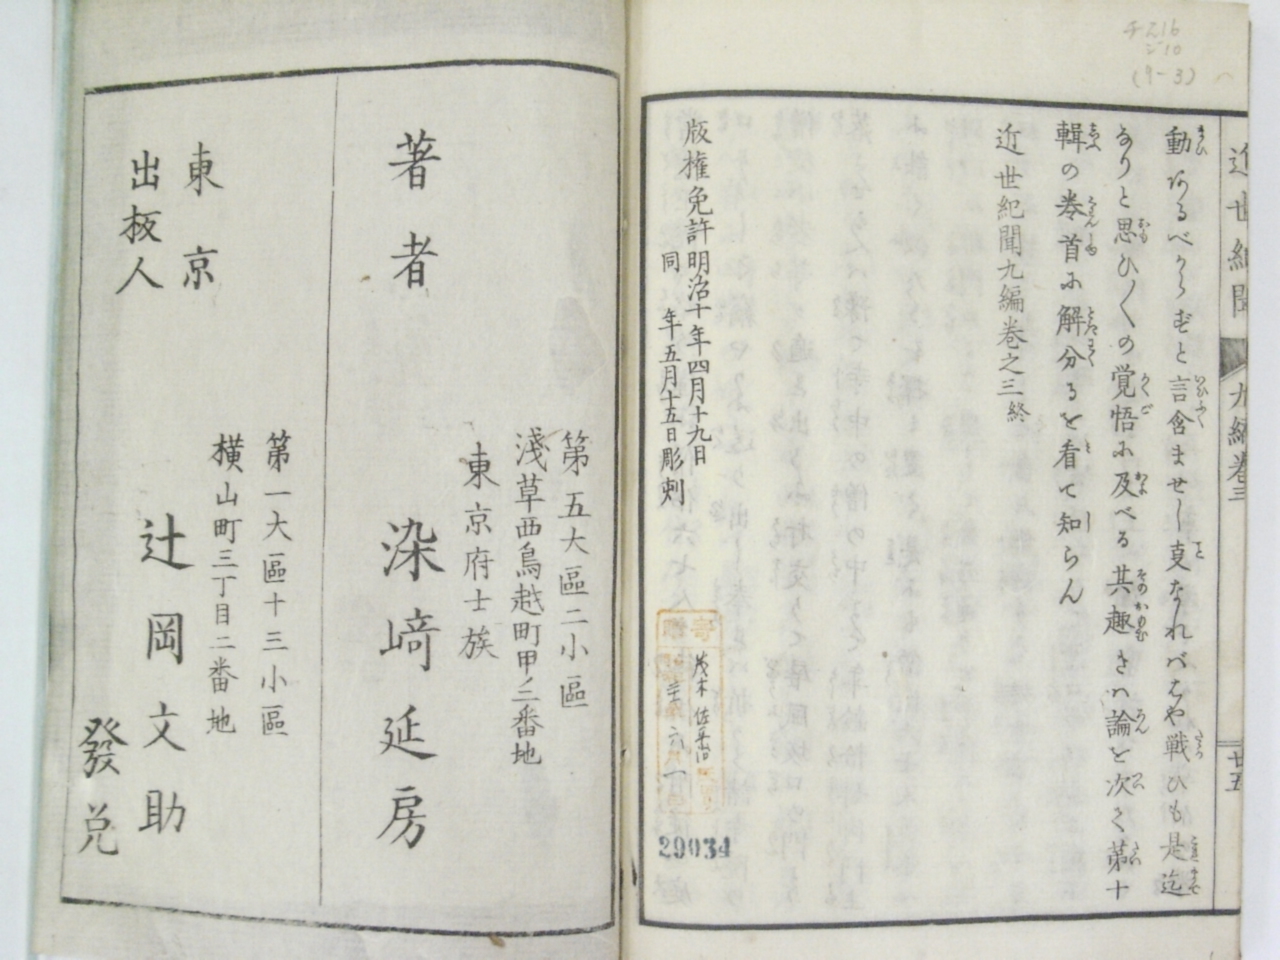 近世紀聞 九編巻三
廿五
動あるべからずと言含ませし支なればはや戦ひも是迄
なりと思ひ〳〵の覚悟に及べる其趣きハ論を次く第十
輯の巻首に解分るを看て知らん
近世紀聞九編巻之三終
版權免許明治十年四月十九日
同年五月十五日彫刻
29034
第五大區二小區
淺草西鳥越町甲二番地
東京府士族
著者 染﨑延房
第一大區十三小區
横山町三丁目二番地
東京
出板人 辻岡文助
發兌